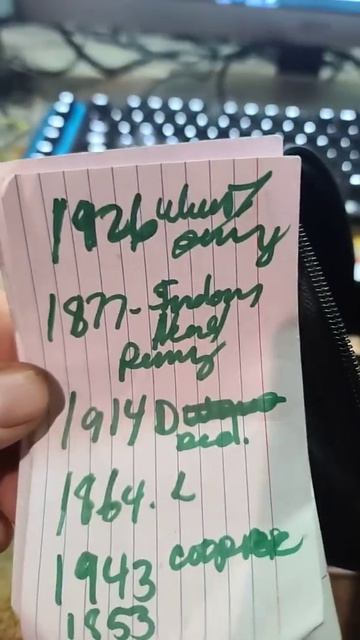 1926 wheat
penny
1877-Indian
Head
Penny
1914 D
1864. L
1943 COOPPER
1853